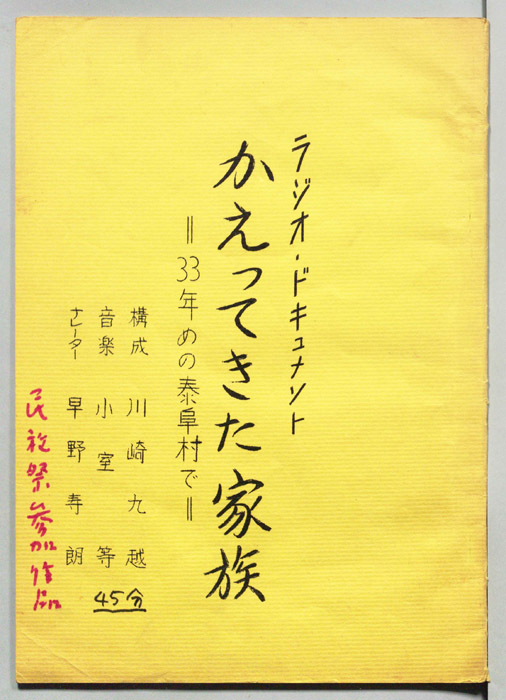 ラジオ・ドキュメント
かえってきた家族
＝33年めの泰阜村で＝
構成 川崎九越
音楽 小室等
ナレーター 早野寿朗
45分
民族祭参加作品